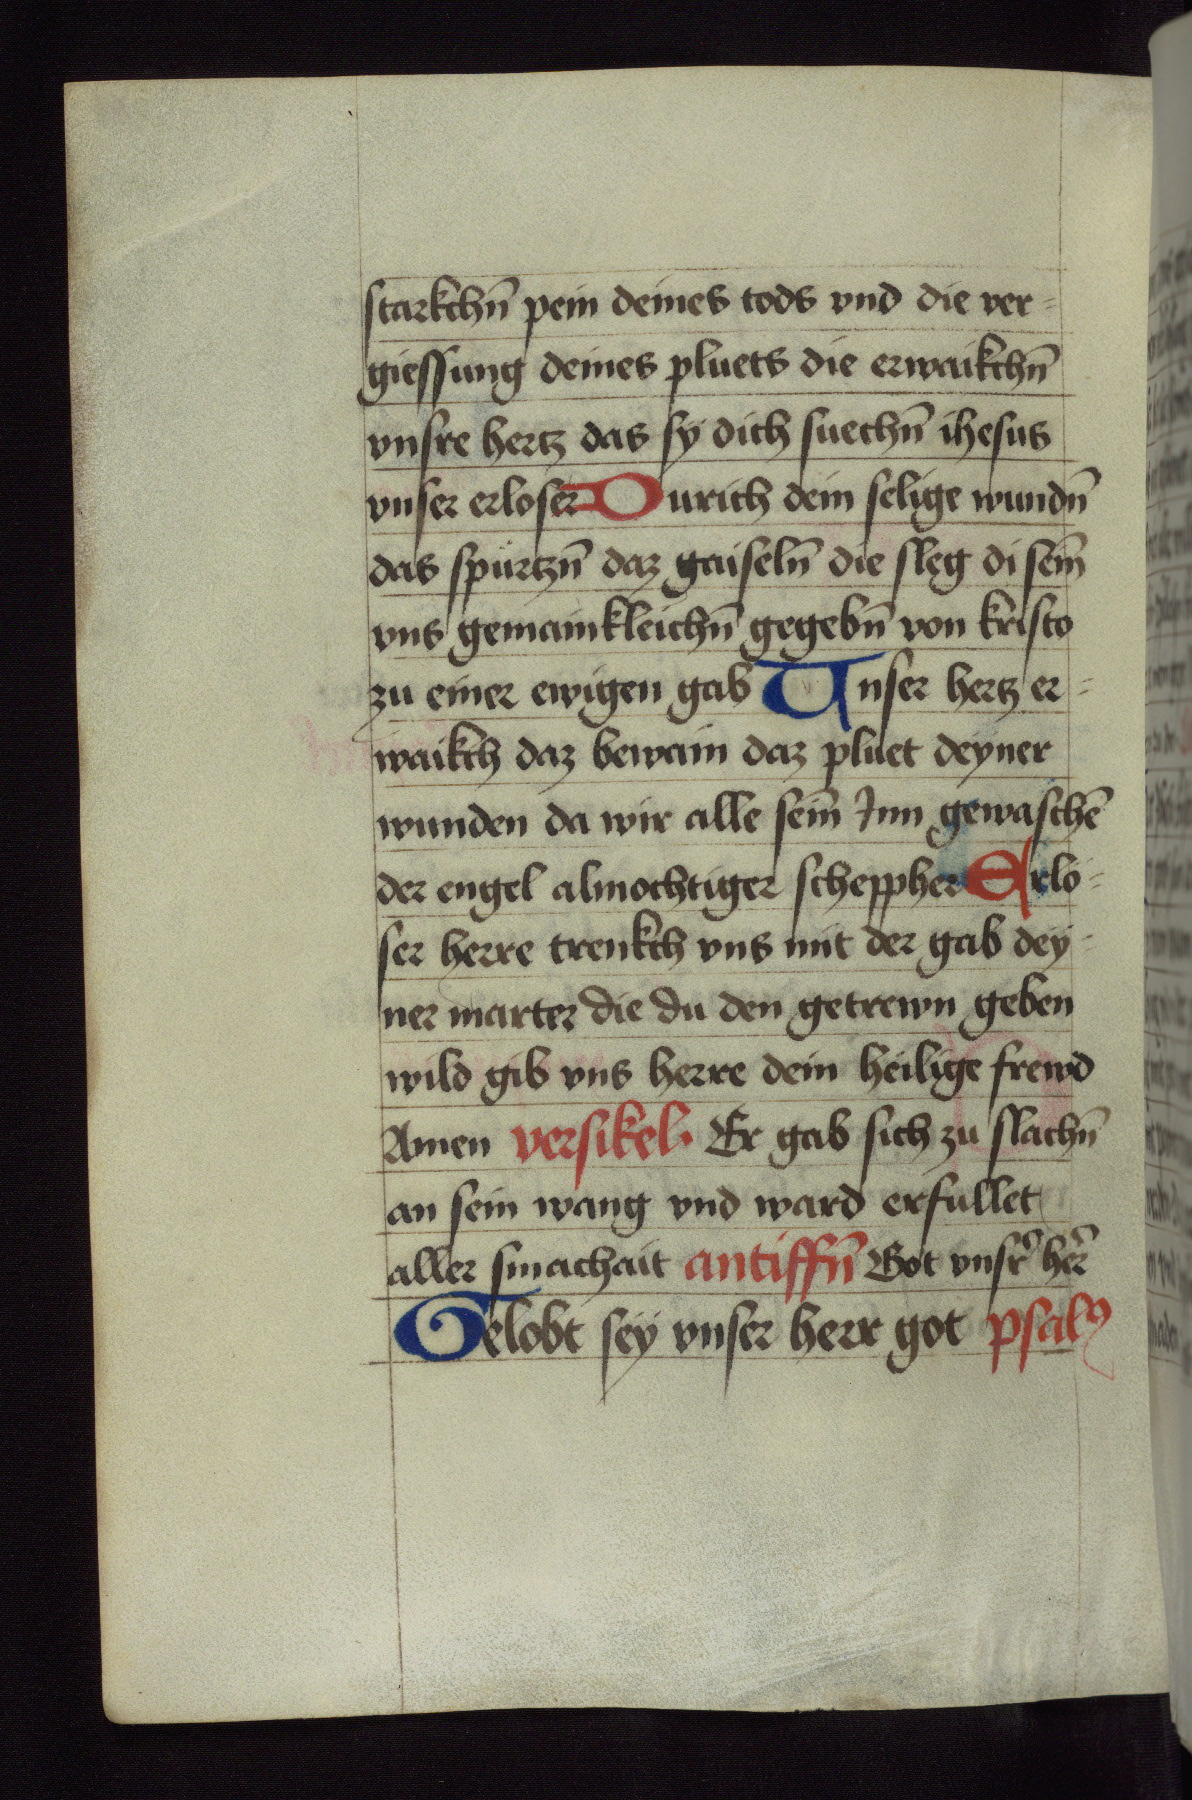 starkchn̄ pein deines tods vnd die ver=
giessung deines pluets die erwaikchn̄
vnsre hertz das sÿ dich suechn̄ ihesus
vnser erloser Durich dein selige wundn̄
das spürtzn̄ daz gaiseln̄ die sleg di sein̄
vns gemainkleichn̄ gegebn̄ von kristo
zu einer ewigen gab Unser hertz er=
waikch daz bewain daz pluet deyner
wunden da wir alle sein̄ Jnn gewaschē
der engel almochtiger scheppher Erlo=
ser herre trenkch vns mit der gab dey=
ner marter die du den getrewn geben
wild gib vns herre dein heilige frewd
Amen versikel. Er gab sich zu slachn̄
an sein wang vnd ward erfullet
aller smachait antiffn̄ Got vnsr̄ her̄
Gelobt sey vnser herr got psalꝫ